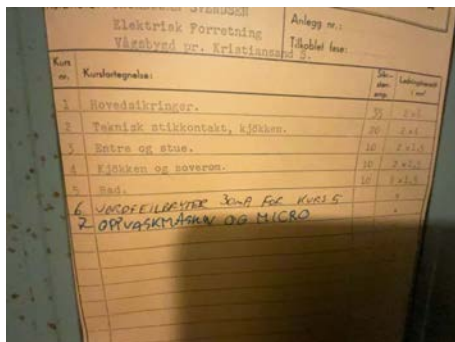 SVENDSEN
Elektrisk Forretning
Vågsbygd pr. Kristiansand S.
Anlegg nr.:
Tilkoblet fase:
Kurs nr. Kursfortegnelse: Sik- amp.
1 Hovedsikringer. 35
2 Teknisk stikkontakt, kjökken. 20
3 Entre og stue. 10 2 x 1,5
4 Kjökken og soverom. 10 2 x 1,5
5 Bad. 10 2 x 1,5
6 JORDFEILBRYTER 30mA FOR KURS 5 "
7 OPPVASKMASKIN OG MICRO "